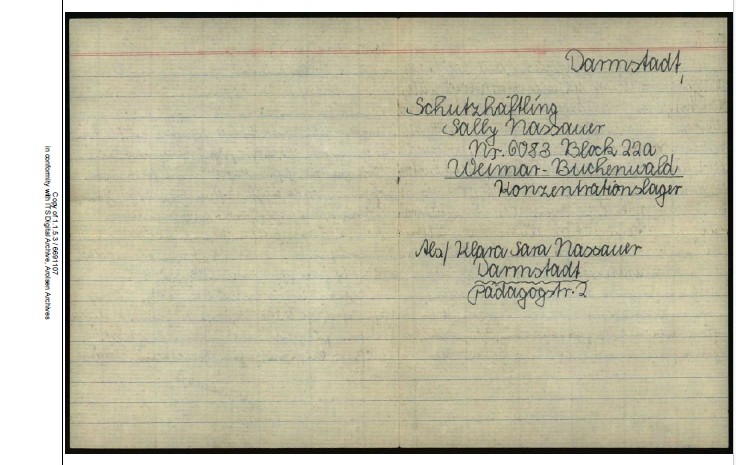 Darmstadt,
Schutzhäftling
Sally Nassauer
Nr. 6083 Block 22a
Weimar-Buchenwald
Konzentrationslager
Abs/ Klara Sara Nassauer
Darmstadt
Pädagogstr. 2
Copy of 1.1.5.3 / 6691107
in conformity with ITS Digital Archive, Arolsen Archives